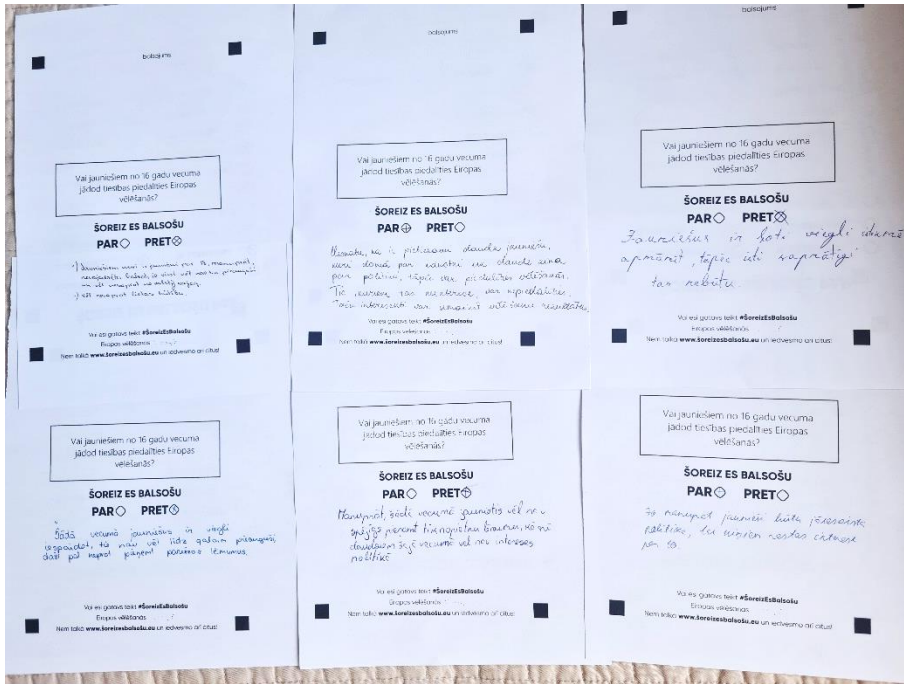 balsojums
Vai jauniešiem no 16 gadu vecuma
jādod tiesības piedalīties Eiropas
vēlēšanās?
ŠOREIZ ES BALSOŠU
PAR PRET
Vai esi gatavs teikt #ŠoreizEsBalsošu
Eiropas vēlēšanās
Ņem talkā www.šoreizesbalsošu.eu un iedvesmo arī citus!
balsojums
Vai jauniešiem no 16 gadu vecuma
jādod tiesības piedalīties Eiropas
vēlēšanās?
ŠOREIZ ES BALSOŠU
PAR PRET
ka ir pietiekami daudz jauniešu,
kuri domā par nākotni un daudz zina
par politiku, tāpēc var piedalīties vēlēšanās.
Tie, kuriem tas neinteresē, var nepiedalīties.
vēlēšanu rezultātus
Vai esi gatavs teikt #ŠoreizEsBalsošu
Eiropas vēlēšanās
Ņem talkā www.šoreizesbalsošu.eu un iedvesmo arī citus!
balsojums
Vai jauniešiem no 16 gadu vecuma
jādod tiesības piedalīties Eiropas
vēlēšanās?
ŠOREIZ ES BALSOŠU
PAR PRET
Jauniešus ir ļoti viegli
apmānīt, tāpēc īsti saprātīgi
tas nebūtu.
Vai esi gatavs teikt #ŠoreizEsBalsošu
Eiropas vēlēšanās
Ņem talkā www.šoreizesbalsošu.eu un iedvesmo arī citus!
Vai jauniešiem no 16 gadu vecuma
jādod tiesības piedalīties Eiropas
vēlēšanās?
ŠOREIZ ES BALSOŠU
PAR PRET
Šādā vecumā jauniešus ir viegli
iespaidot, tā nav vēl līdz galam pieauguši,
daži pat neprot pieņemt pareizos lēmumus.
Vai esi gatavs teikt #ŠoreizEsBalsošu
Eiropas vēlēšanās
Ņem talkā www.šoreizesbalsošu.eu un iedvesmo arī citus!
Vai jauniešiem no 16 gadu vecuma
jādod tiesības piedalīties Eiropas
vēlēšanās?
ŠOREIZ ES BALSOŠU
PAR PRET
Manuprāt, šādā vecumā jaunietis vēl nav
spējīgs pieņemt tik nopietnu lēmumu, kā arī
daudziem šajā vecumā vēl nav intereses
politikā
Vai esi gatavs teikt #ŠoreizEsBalsošu
Eiropas vēlēšanās
Ņem talkā www.šoreizesbalsošu.eu un iedvesmo arī citus!
Vai jauniešiem no 16 gadu vecuma
jādod tiesības piedalīties Eiropas
vēlēšanās?
ŠOREIZ ES BALSOŠU
PAR PRET
manuprāt jaunieši būtu jāiesaista
politikā, tu
par to.
Vai esi gatavs teikt #ŠoreizEsBalsošu
Eiropas vēlēšanās
Ņem talkā www.šoreizesbalsošu.eu un iedvesmo arī citus!